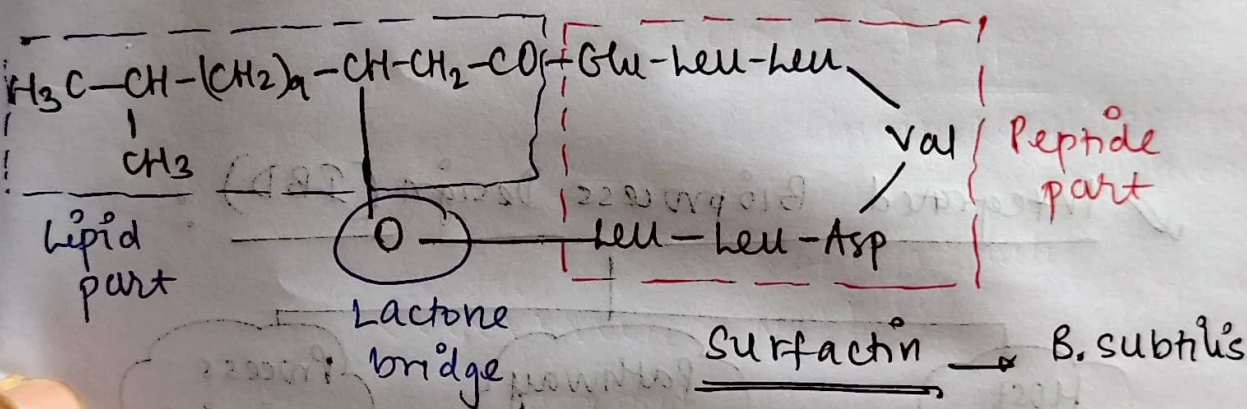 H3C-CH-(CH2)9-CH-CH2-CO-Glu-Leu-Leu
CH3
Val
Peptide
part
O-Leu-Leu-Asp
Lipid
part
Lactone
bridge
Surfactin → B. subtilis